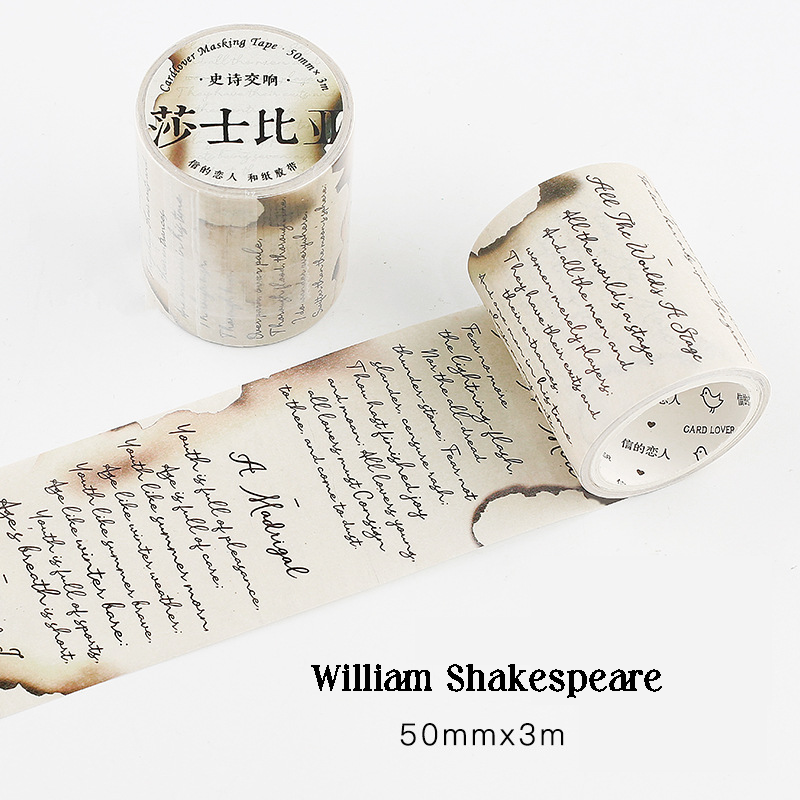 Cardlover Masking Tape · 50mm×3m
·史诗交响·
莎士比亚
信的恋人 和纸胶带
Over park over pale,
Thorough flood, thorough fire,
I do wander everywhere,
Swifter than the moon's sphere;
All The World's A Stage
All the world's a stage,
And all the men and
women merely players;
They have their exits and
their entrances,
CARD LOVER
信的恋人
Fear no more
the lightning flash,
Nor the all-dread
thunder-stone; Fear not
slander, censure rash;
Thou hast finished joy
and moan; All lovers young,
all lovers must Consign
to thee, and come to dust.
A Madrigal
Youth is full of pleasance,
Age is full of care;
Youth like summer morn,
Age like winter weather;
Youth like summer brave,
Age like winter bare:
Youth is full of sports,
Age's breath is short,
William Shakespeare
50mmx3m